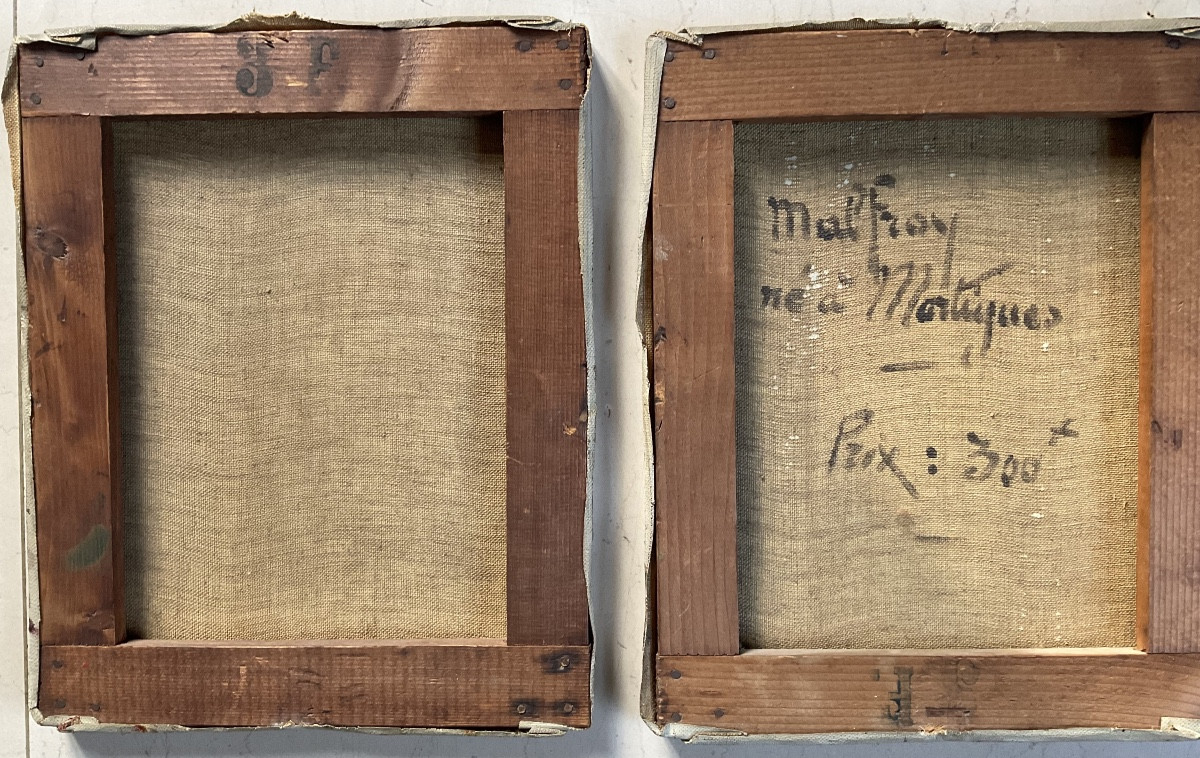 3 F
Malfroy
né à Martigues
Prix : 300